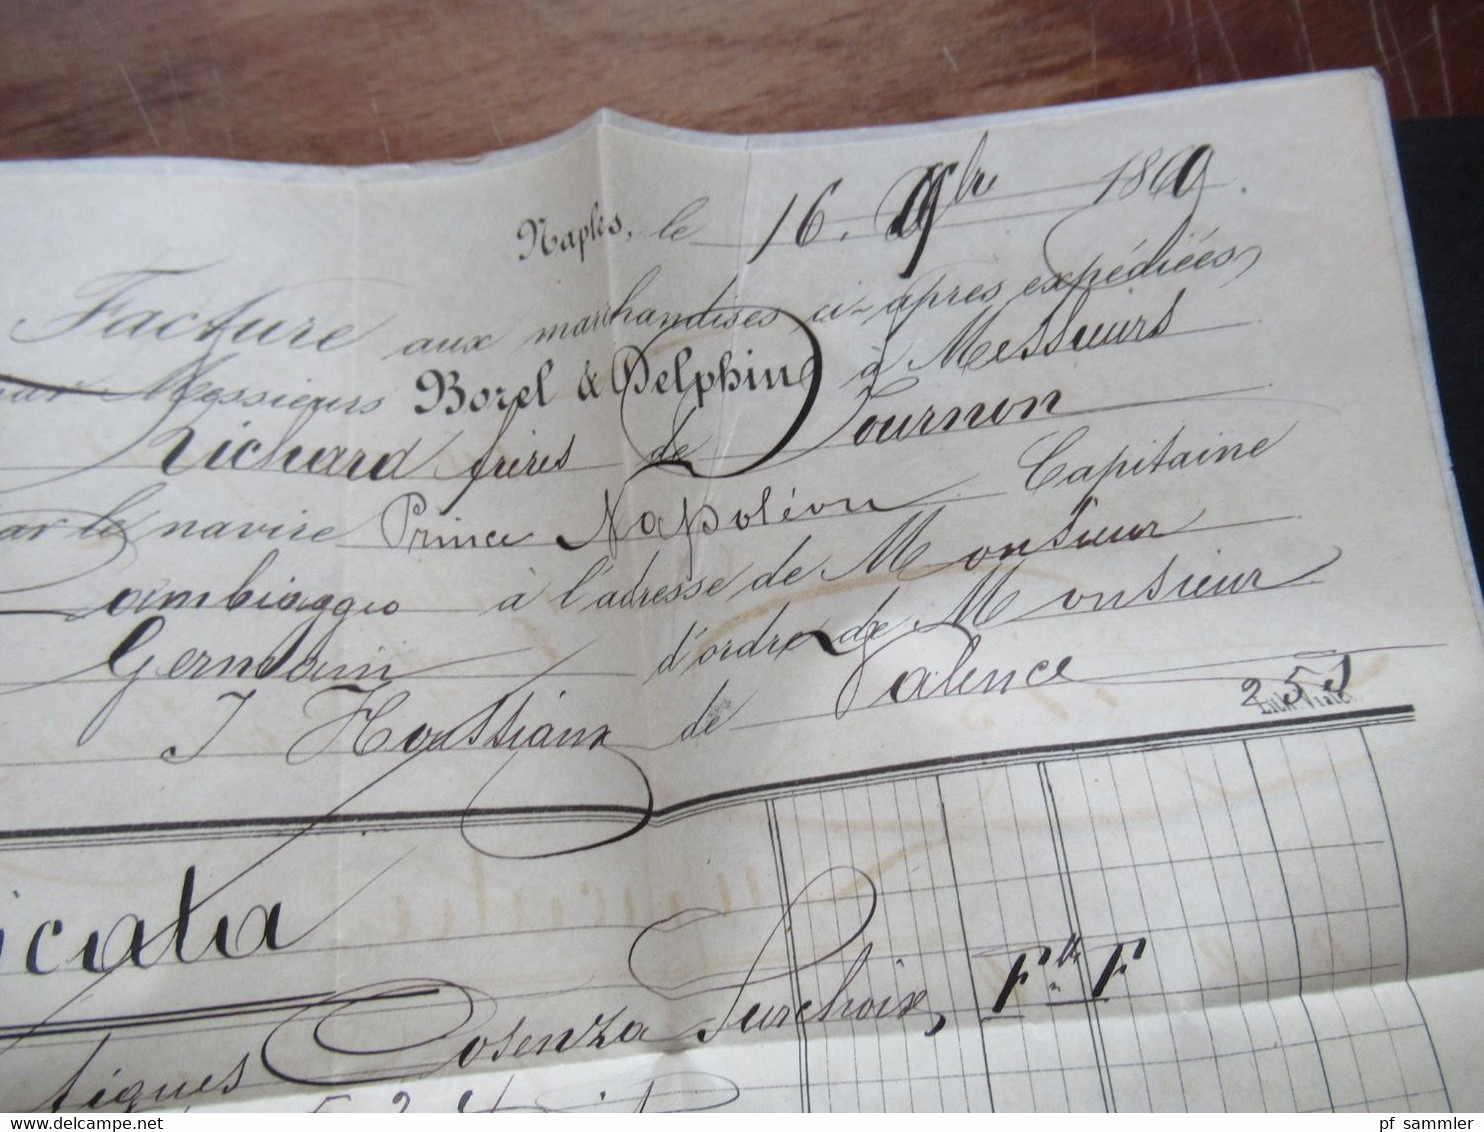 Naples, le 16. 9bre 1869.
Facture aux marchandises ci-après expédiées
par Messieurs Borel & Delphin à Messieurs
Richard frères de Tournon
par le navire Prince Napoléon Capitaine
Cambiaggio à l'adresse de Monsieur
Germain d'ordre de Monsieur
J de Valence
253
Lith. Vial
icata
figues Cosenza Surchoix, F
524
pf_sammler